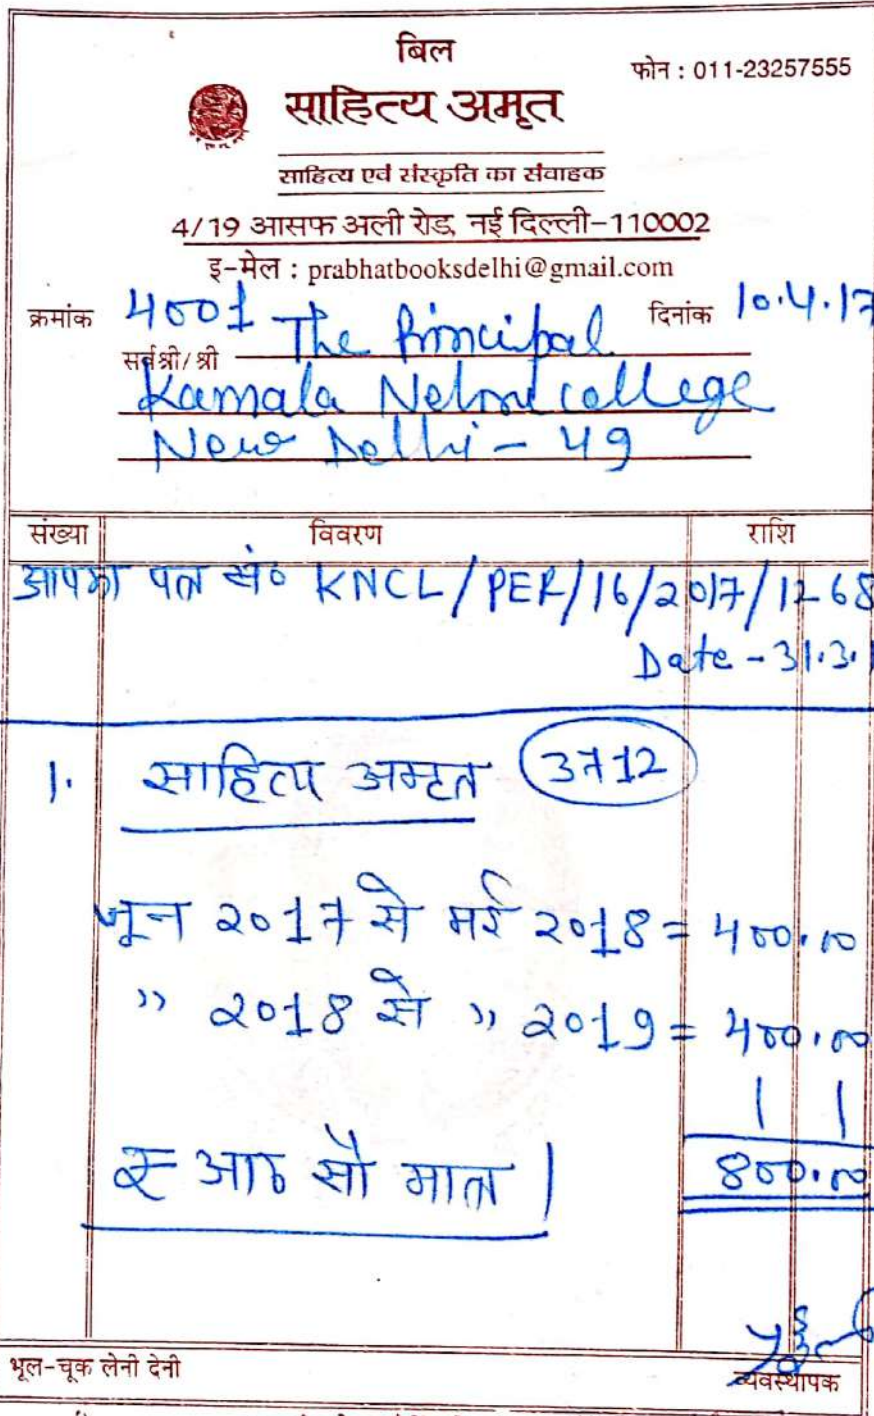 बिल
फोन : 011-23257555
साहित्य अमृत
साहित्य एवं संस्कृति का संवाहक
4/19 आसफ अली रोड, नई दिल्ली-110002
इ-मेल : prabhatbooksdelhi@gmail.com
क्रमांक 4001 दिनांक 10.4.17
सर्वश्री/श्री The Principal
Kamala Nehru college
New Delhi - 49
संख्या विवरण राशि
आपका पत्र सं० KNCL/PER/16/2017/1268
Date - 31.3.1
1. साहित्य अमृत 3712
जून 2017 से मई 2018 = 400.00
" 2018 से " 2019 = 400.00
रु आठ सौ मात्र | 800.00
भूल-चूक लेनी देनी
व्यवस्थापक